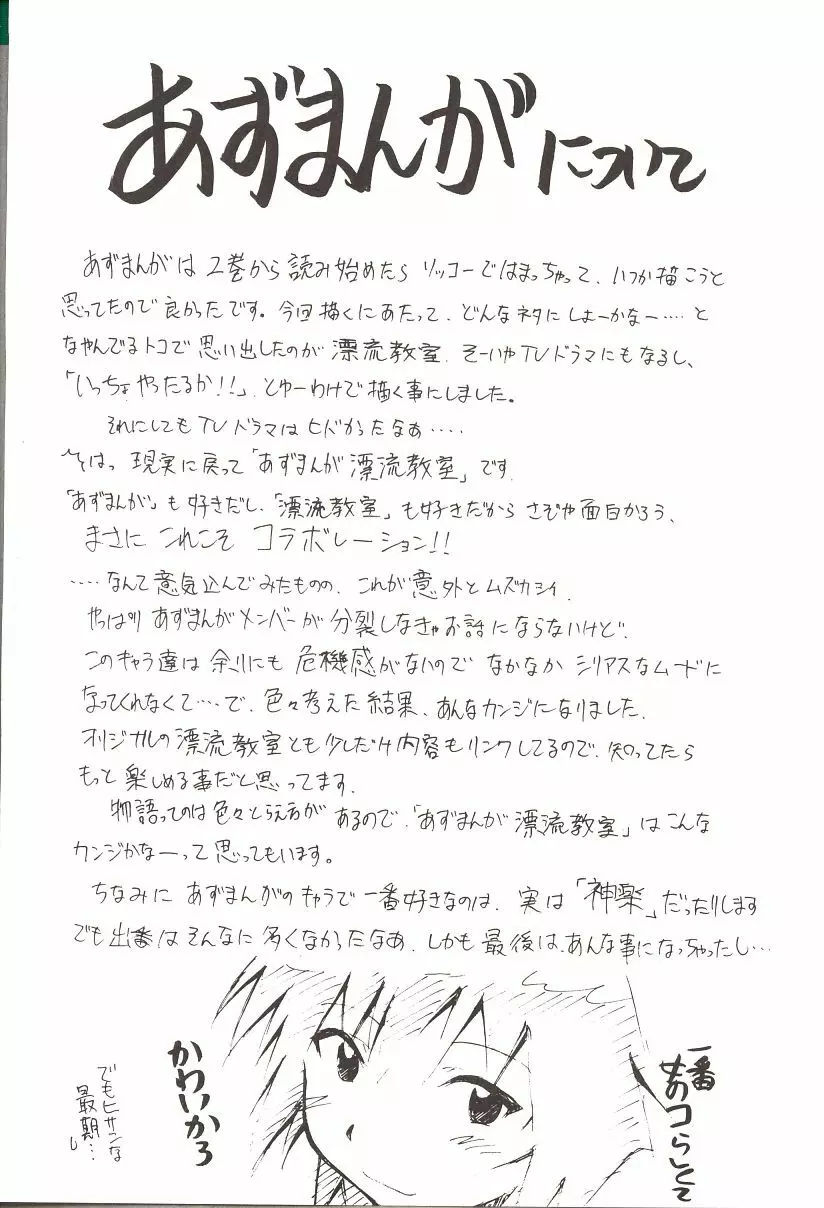 あずまんがについて
あずまんがは2巻から読み始めたらソッコーではまっちゃって、いつか描こうと
思ってたので良かったです。今回描くにあたって、どんなネタにしよーかなー‥‥と
なやんでるトコで思い出したのが漂流教室、そーいやTVドラマにもなるし、
「いっちょやったるか!!」とゆーわけで描く事にしました。
それにしてもTVドラマはヒドかったなぁ‥‥
現実に戻って「あずまんが漂流教室」です。
「あずまんが」も好きだし、「漂流教室」も好きだからさぞや面白かろう、
まさにこれこそコラボレーション!!
‥‥なんて意気込んでみたものの、これが意外とムズカシイ。
やっぱりあずまんがメンバーが分裂しなきゃお話にならないけど、
このキャラ達は余りにも危機感がないのでなかなかシリアスなムードに
なってくれなくて‥‥で、色々考えた結果、あんなカンジになりました。
オリジナルの漂流教室とも少しだけ内容もリンクしてるので、知ってたら
もっと楽しめる事だと思ってます。
物語ってのは色々とらえ方があるので、「あずまんが漂流教室」はこんな
カンジかなーって思ってもいます。
ちなみにあずまんがのキャラで一番好きなのは、実は「神楽」だったりします
でも出番はそんなに多くなかったなあ、しかも最後は、あんな事になっちゃったし‥
一番
オコらしくて
かわいかろ
でもヒサンな
最期‥し